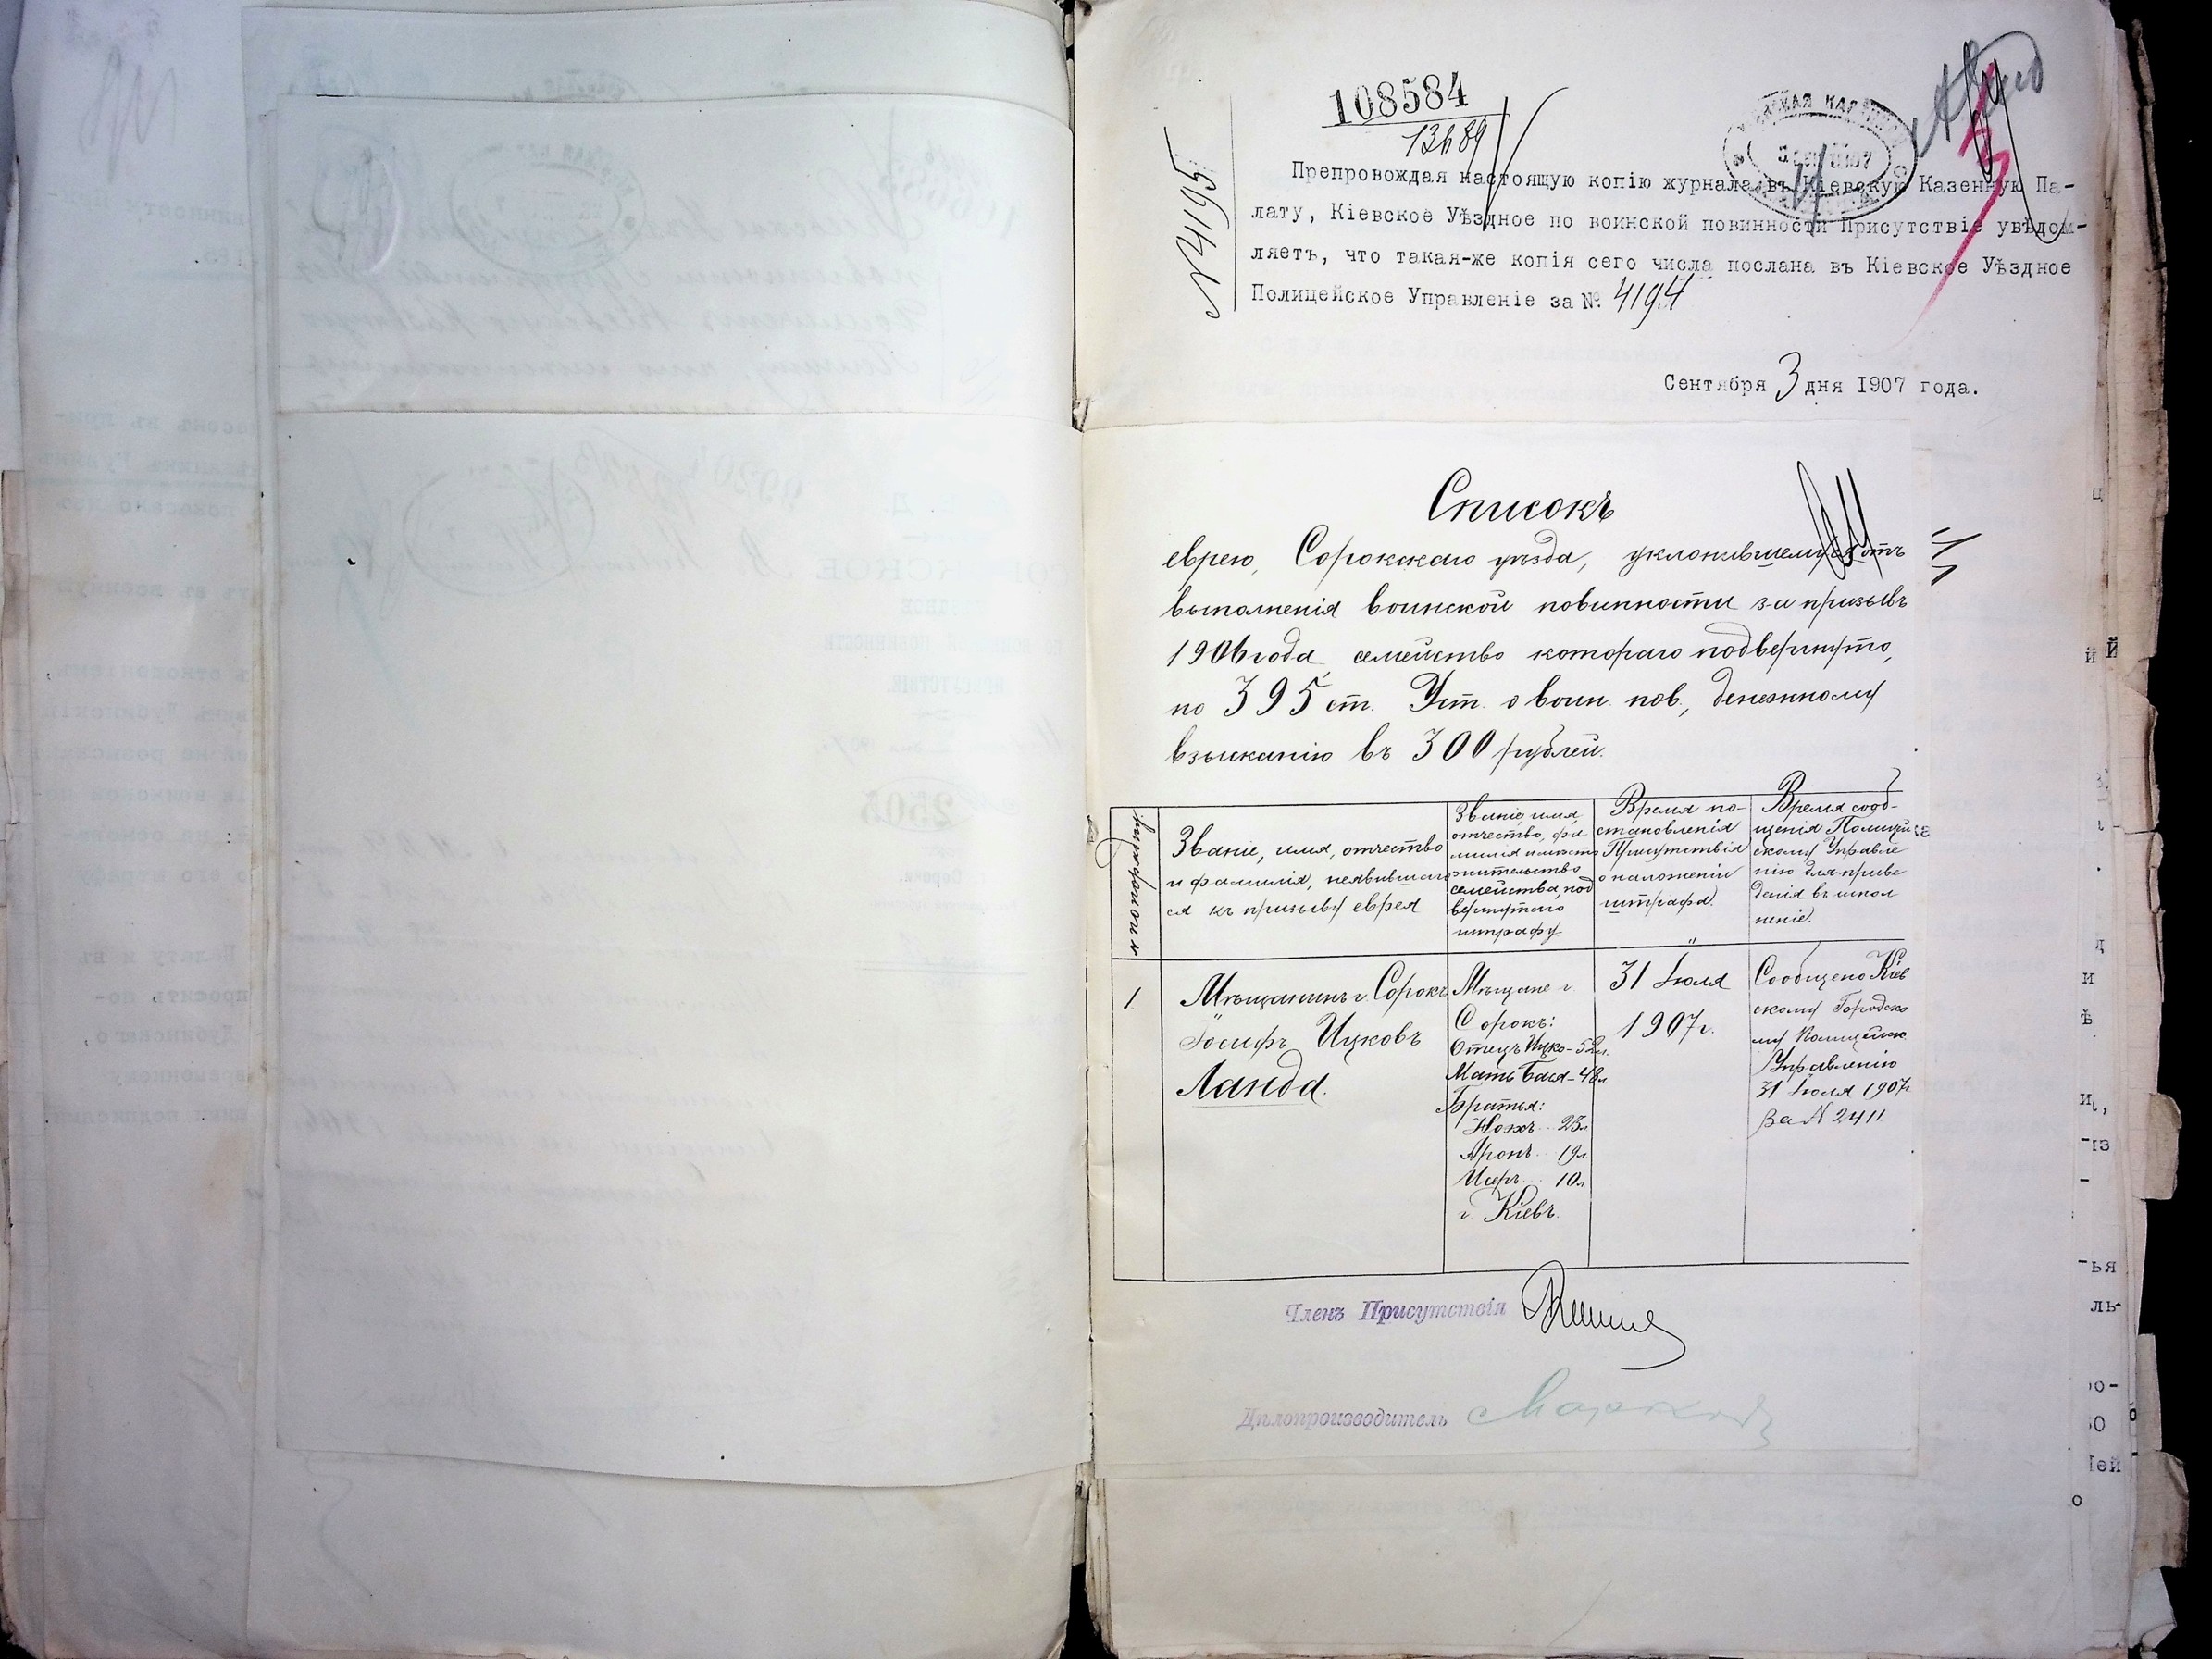 108584
13689
№ 4195
Препровождая настоящую копію журнала въ Кіевскую Казенную Па-
лату, Кіевское Уѣздное по воинской повинности Присутствіе увѣдом-
ляетъ, что такая-же копія сего числа послана въ Кіевское Уѣздное
Полицейское Управленіе за №. 4194
Сентября 3 дня 1907 года.
Списокъ
еврею, Сорокскаго уѣзда, уклонившемуся отъ
выполненія воинской повинности за призывъ
1906 года, семейство котораго подвергнуто,
по 395 ст. Уст. о воин. пов., денежному
взысканію въ 300 рублей.
№ по порядку
Званіе, имя, отчество
и фамилія, неявившаго
ся къ призыву еврея
Званіе, имя,
отчество, фа
милія и мѣсто
жительство
семейства, под
вергнутаго
штрафу
Время по-
становленія
Присутствія
о наложеніи
штрафа.
Время сооб-
щенія Полицей
скому Управле
нію для приве
денія въ испол
неніе.
1.
Мѣщанинъ г. Сорокъ
Іосифъ Ицковъ
Ланда.
Мѣщане г.
Сорокъ:
Отецъ Ицко - 52 л.
Мать Бася - 48 л.
Братья:
23 л
Аронъ 19 л
10 л
г. Кіевъ.
31 Іюля
1907 г.
Сообщено Кіев
скому Городско
му Полицейск.
Управленію
31 Іюля 1907 г
за № 2411.
Членъ Присутствія
Дѣлопроизводитель